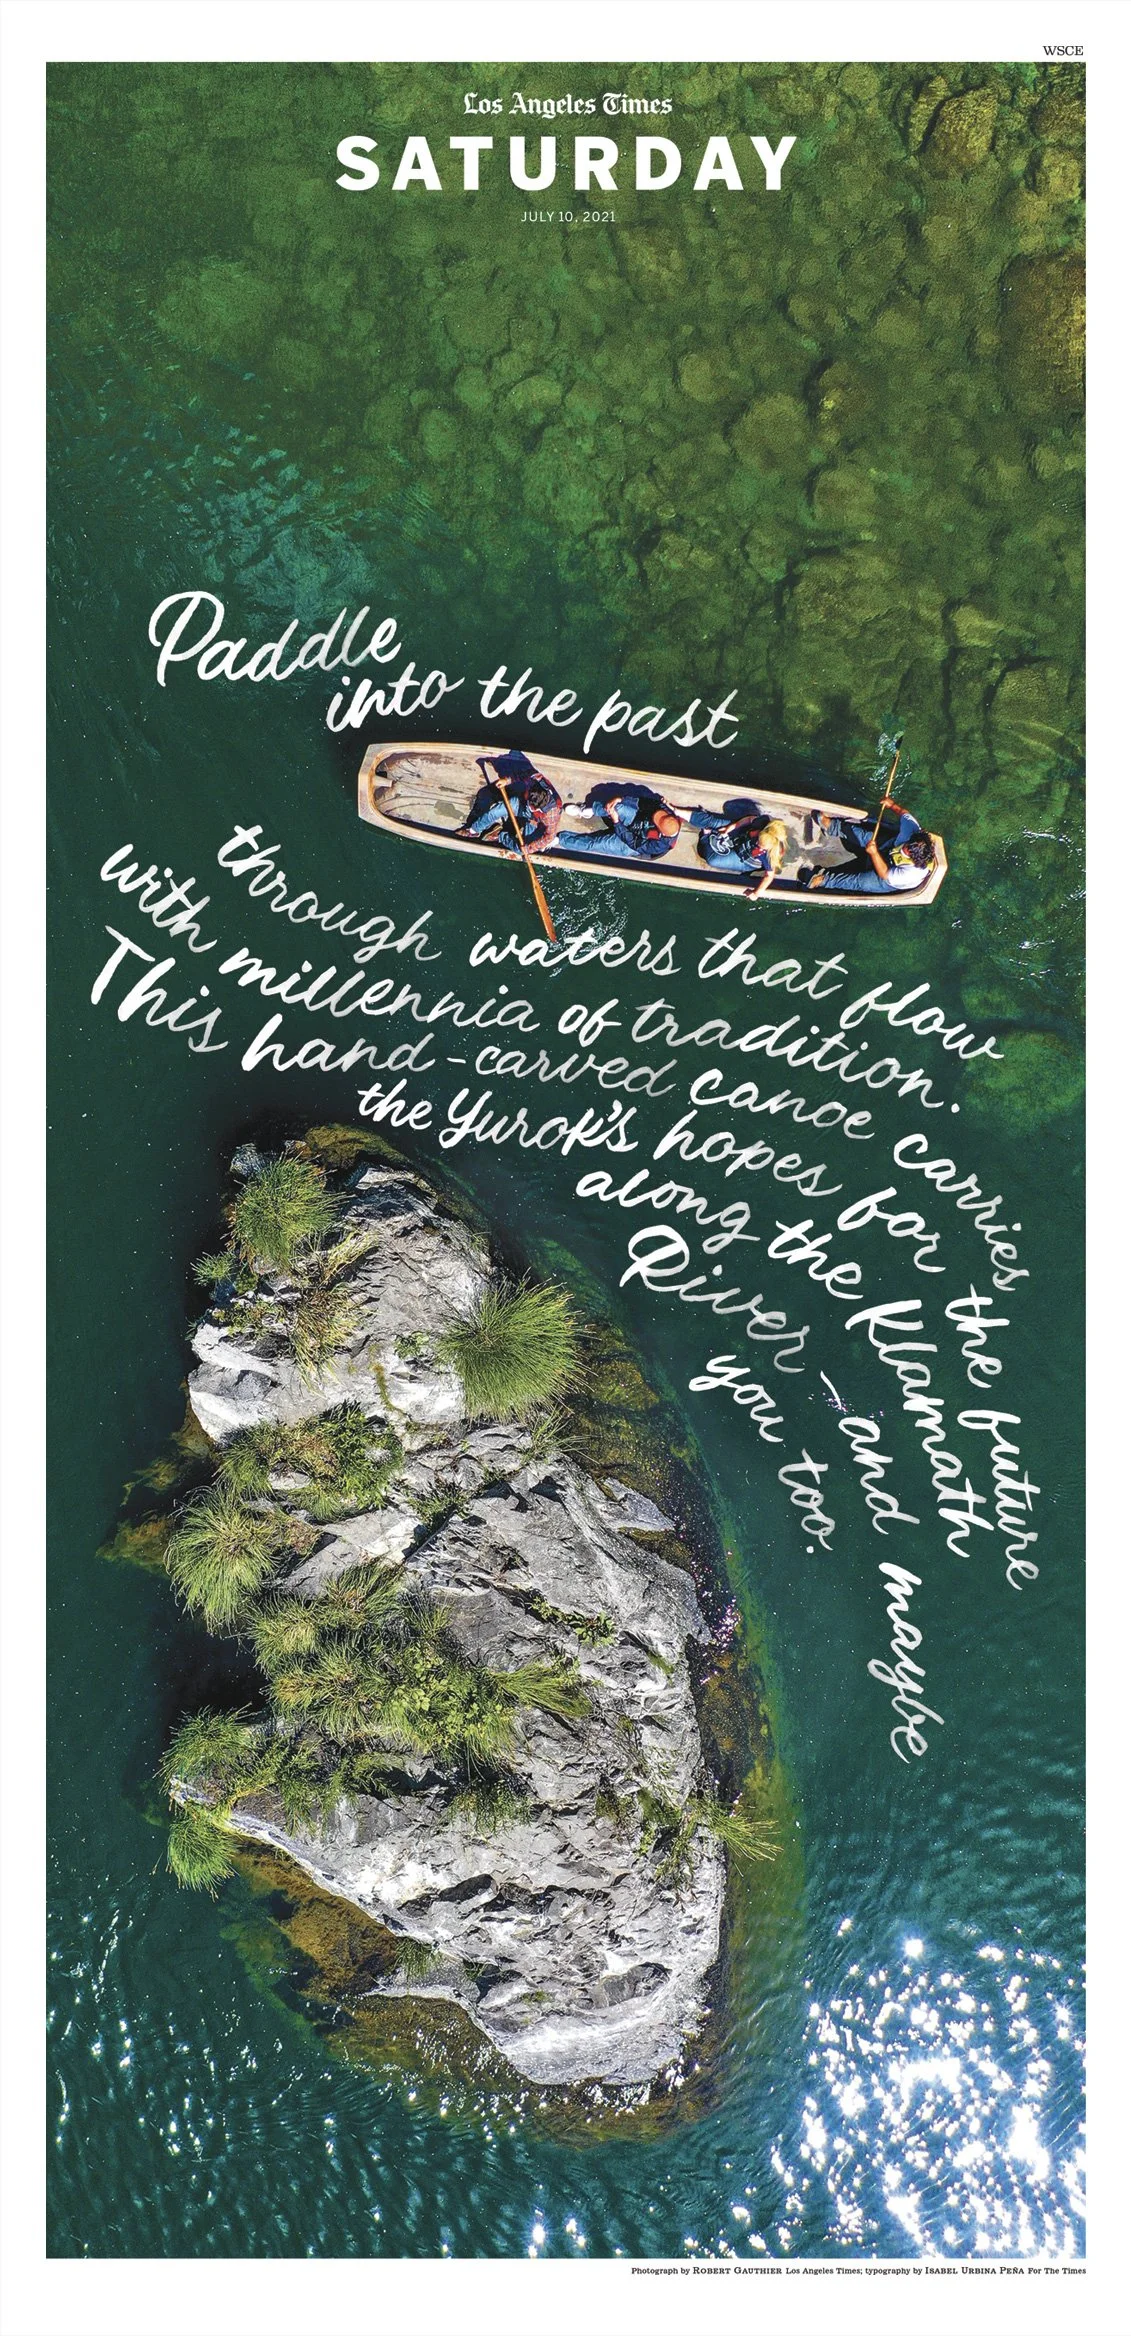 WSCE
Los Angeles Times
SATURDAY
JULY 10, 2021
Paddle
into the past
through waters that flow
with millennia of tradition.
This hand-carved canoe carries the future
the Yurok's hopes for the Klamath
along the
River – and maybe
you too.
Photograph by ROBERT GAUTHIER Los Angeles Times; typography by ISABEL URBINA PEÑA For The Times